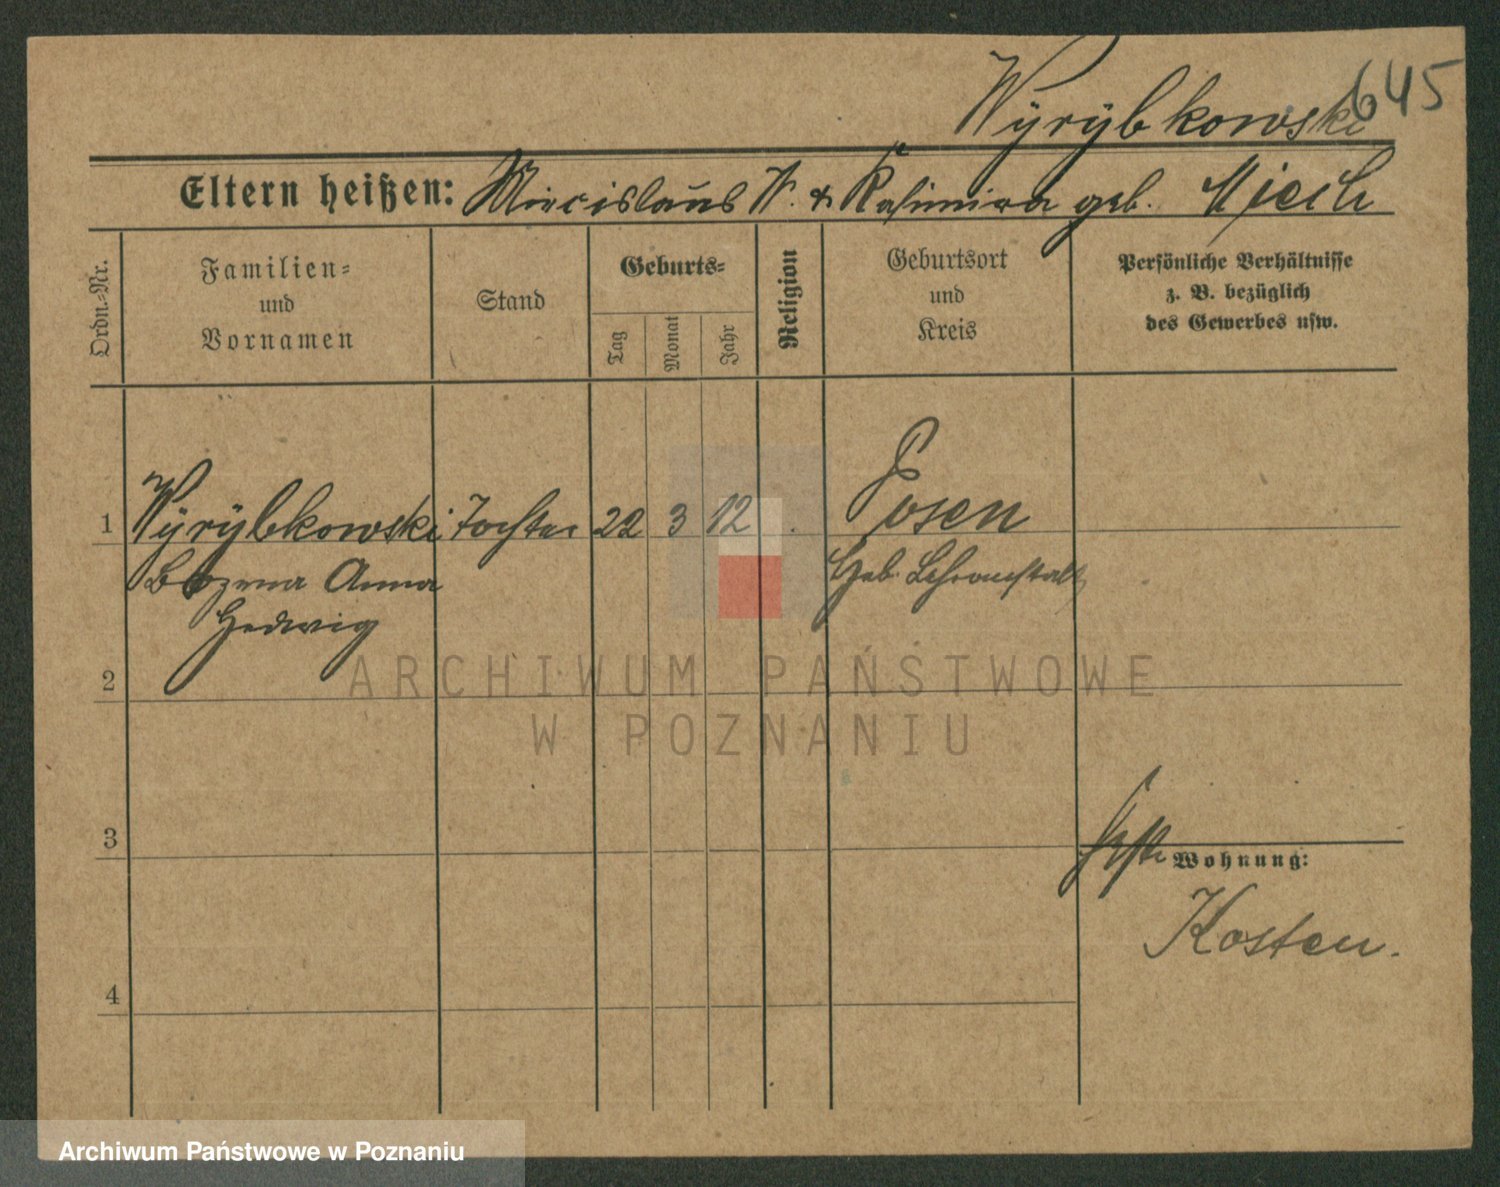 645
Wyrybkowski
Eltern heißen: Miecislaus W. & Kasimira geb.
Ordn.-Nr.
Familien-
und
Vornamen
Stand
Geburts-
Tag
Monat
Jahr
Religion
Geburtsort
und
Kreis
Persönliche Verhältnisse
z. B. bezüglich
des Gewerbes usw.
1 Wyrybkowski Tochter 22 3 12 Posen
Bozena Anna Heb. Lehranstalt
Hedwig
2
ARCHIWUM PAŃSTWOWE
W POZNANIU
3
Wohnung:
Kosten.
4
Archiwum Państwowe w Poznaniu